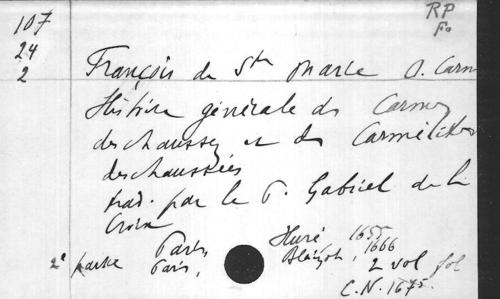 107
24
2
RP
Fo
François de Ste Marie O. Carm
Histoire générale des Carmes
deschaussez et des Carmélites
deschaussées
trad. par le P. Gabriel de la
Croix
Paris Huré 1655
2e partie Paris, 1666
2 vol fol
C.N. 1675.